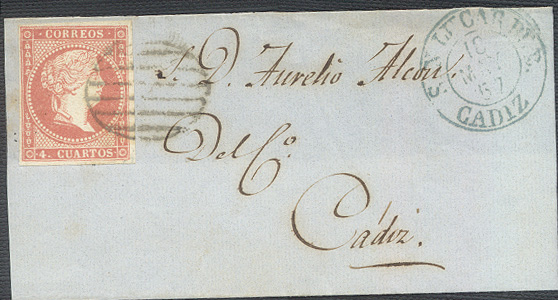 CORREOS
4. CUARTOS
S. D. Aurelio Alcon
Del Co.
Cádiz.
SAN LUCAR DE B.
18
MAY
57
CADIZ